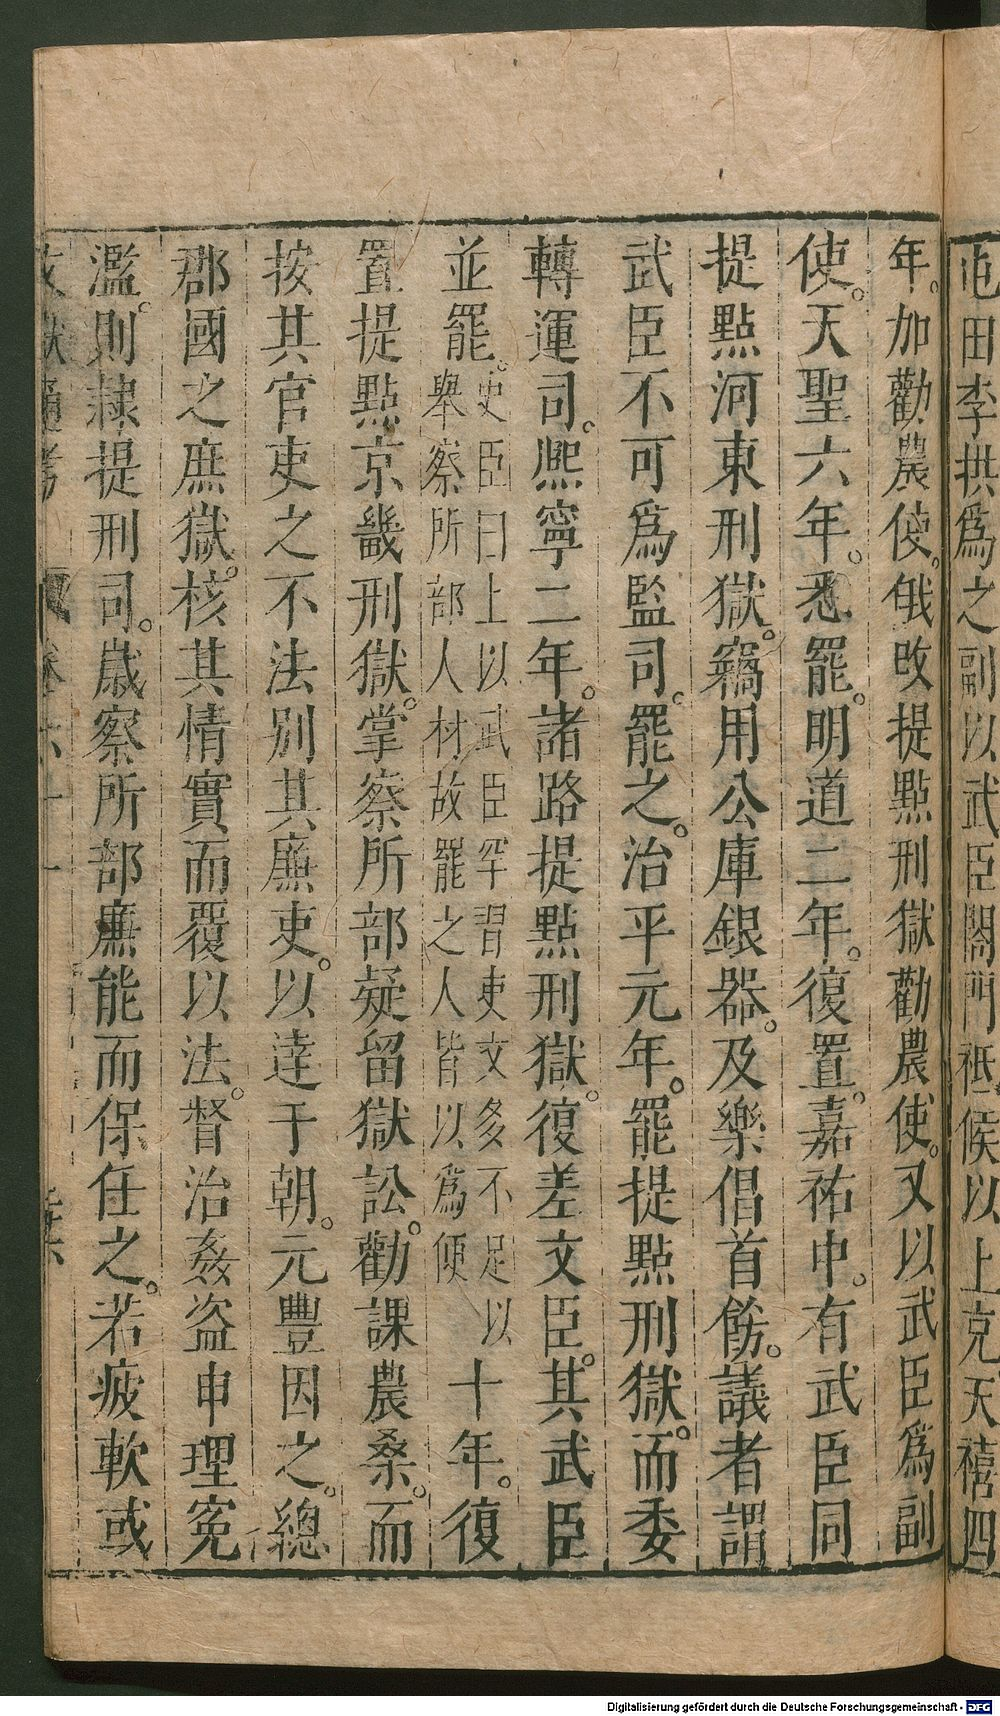 祗候以上克天禧四
年。加勸農使。俄改提點刑獄勸農使。又以武臣爲副
使。天聖六年。悉罷。明道二年。復置。嘉祐中。有武臣同
提點河東刑獄。竊用公庫銀器。及樂倡首餙。議者謂
武臣不可爲監司。罷之。治平元年。罷提點刑獄。而委
轉運司。熈寧二年。諸路提點刑獄。復差文臣。其武臣
並罷。史臣曰上以武臣罕習吏文多不足以
舉察所部人材故罷之人皆以爲便
十年。復
置提點京畿刑獄。掌察所部疑留獄訟。勸課農桑。而
按其官吏之不法別其廉吏。以達于朝。元豐因之。總
郡國之庶獄。核其情實而覆以法。督治姦盗申理寃
濫。則隸提刑司。歳察所部廉能而保任之。若疲軟或
Digitalisierung gefördert durch die Deutsche Forschungsgemeinschaft - DFG